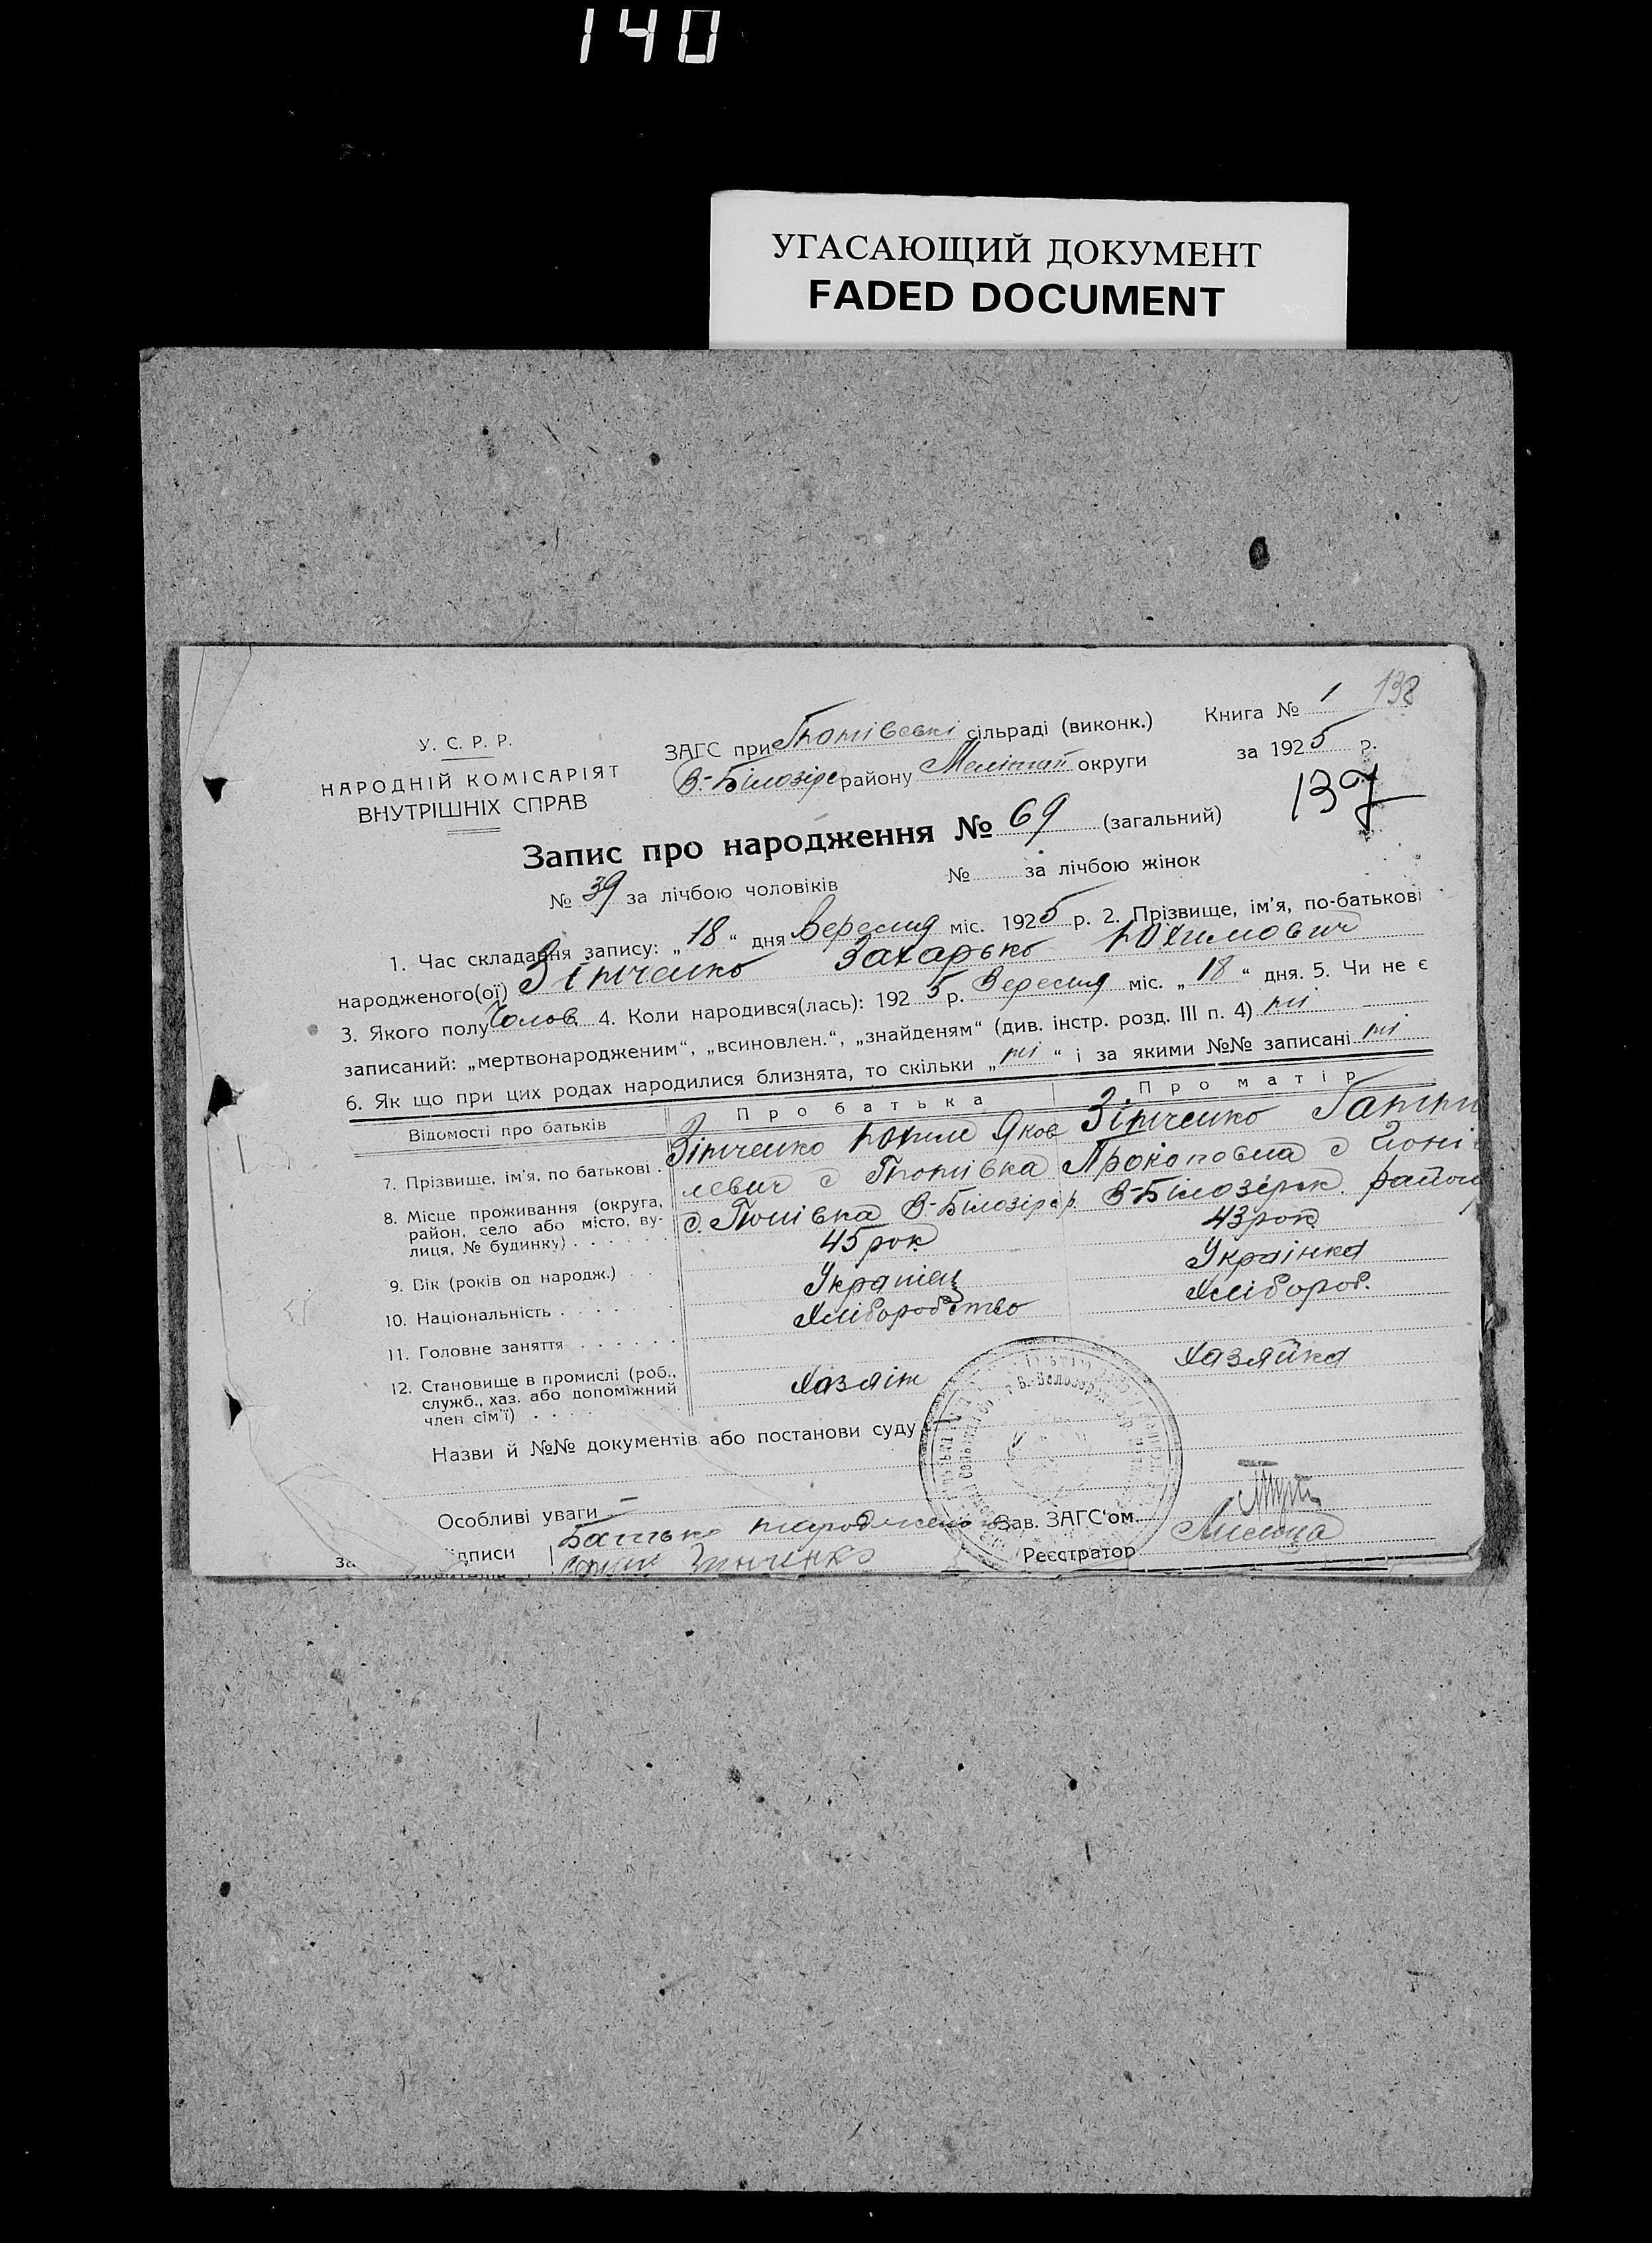 140
УГАСАЮЩИЙ ДОКУМЕНТ
FADED DOCUMENT
138
У. С. Р. Р.
НАРОДНІЙ КОМІСАРІЯТ
ВНУТРІШНІХ СПРАВ
ЗАГС при сільраді (виконк.)
В.-Білозір району Меліт округи
Книга № 1
за 1925 р.
137
Запис про народження № 69 (загальний)
№ 39 за лічбою чоловіків № за лічбою жінок
1. Час складання запису: „18“ дня Вересня міс. 1925 р. 2. Прізвище, ім’я, по-батькові
народженого(ої) Зінченко Захарько Юхимович
3. Якого полу Чолов. 4. Коли народився(лась): 1925 р. Вересня міс. „18“ дня. 5. Чи не є
записаний: „мертвонародженим“, „всиновлен.“, „знайденям“ (див. інстр. розд. III п. 4) ні
6. Як що при цих родах народилися близнята, то скільки „ні“ і за якими №№ записані ні
Відомості про батьків Про батька Про матір
7. Прізвище, ім’я, по батькові . Зінченко Юхим Яков Зінченко
левич с Прокоповна с
8. Місце проживання (округа,
район, село або місто, ву-
лиця, № будинку) . . . . . .
В-Білозір р. В-Білозірск. район
9. Вік (років од народж.) . . 45 рок 43 рок
10. Національність . . . . Українец Українка
11. Головне заняття . . . . . . Хліборобство Хлібороб.
12. Становище в промислі (роб.,
служб., хаз. або допоміжний
член сім’ї) . . . .
Хазяін Хазяйка
Назви й №№ документів або постанови суду
Особливі уваги —
Батько народженого
Зінченко
Зав. ЗАГС’ом
Реєстратор Лисица